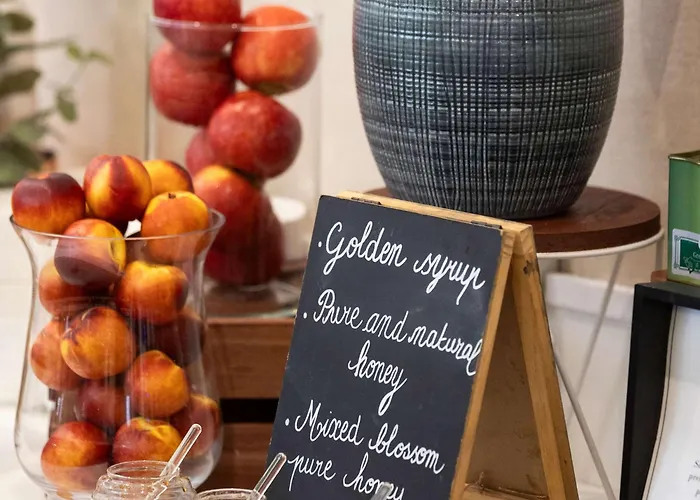 · Golden syrup
· Pure and natural
honey
· Mixed blossom
pure honey